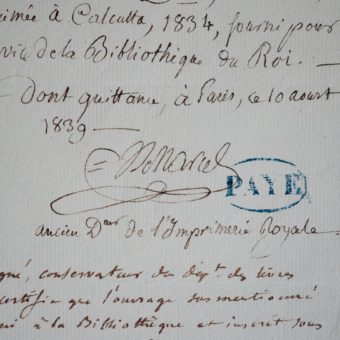 imée à Calcutta, 1834, fourni pour
vice de la Bibliothèque du Roi. —
Dont quittance, à Paris, ce 10 aout
1839 —
PAYÉ
ancien Dteur de l'Imprimerie Royale
gné, conservateur du dépt. des livres
certifie que l'ouvrage sus mentionné
ni à la Bibliothèque et inscrit sous